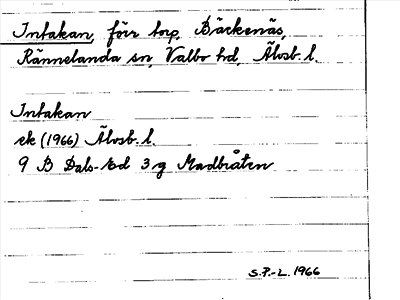 Intakan, förr torp, Bäckenäs,
Rännelanda sn, Valbo hd, Älvsb. l.
Intakan
ek (1966) Älvsb. l.
9 B Dals-Ed 3 g Madbråten
S.F.-L. 1966